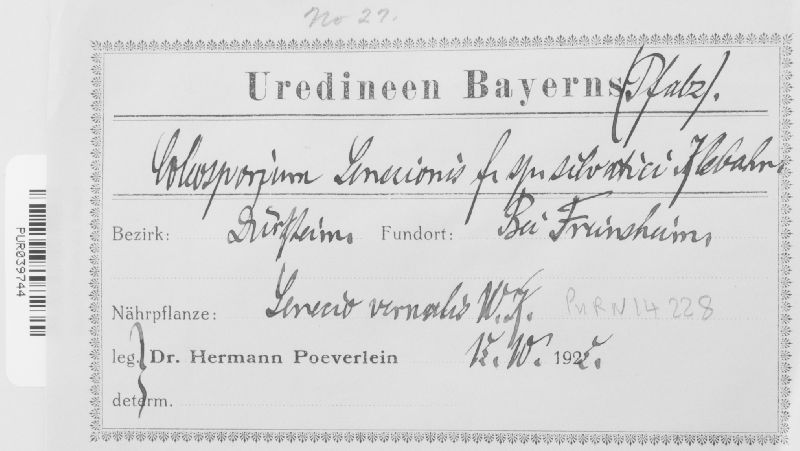 No 27.
Uredineen Bayerns (Pfalz).
Coleosporium Senecionis f. sp. silvatici Klebahn.
Bezirk: Dürkheim. Fundort: Bei Freinsheim.
Nährpflanze: Senecio vernalis W. K. PURN14228
leg. Dr. Hermann Poeverlein 1922.
determ.
PUR039744